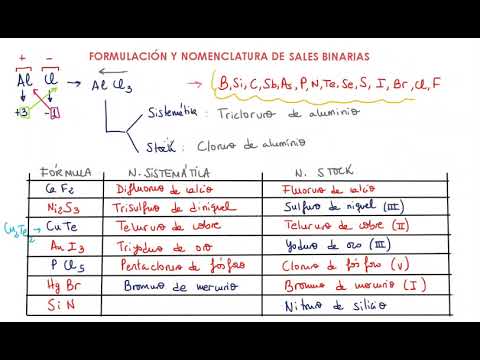 FORMULACIÓN Y NOMENCLATURA DE SALES BINARIAS
+ -
Al Cl → AlCl3
+3 -1
B, Si, C, Sb, As, P, N, Te, Se, S, I, Br, Cl, F
Sistemática : Tricloruro de aluminio
Stock : Cloruro de aluminio
FÓRMULA N. SISTEMÁTICA N. STOCK
CaF2 Difluoruro de calcio Fluoruro de calcio
Ni2S3 Trisulfuro de diníquel Sulfuro de níquel (III)
Cu2Te2 CuTe Telururo de cobre Telururo de cobre (II)
AuI3 Triyoduro de oro Yoduro de oro (III)
PCl5 Pentacloruro de fósforo Cloruro de fósforo (V)
HgBr Bromuro de mercurio Bromuro de mercurio (I)
SiN Nitruro de silicio